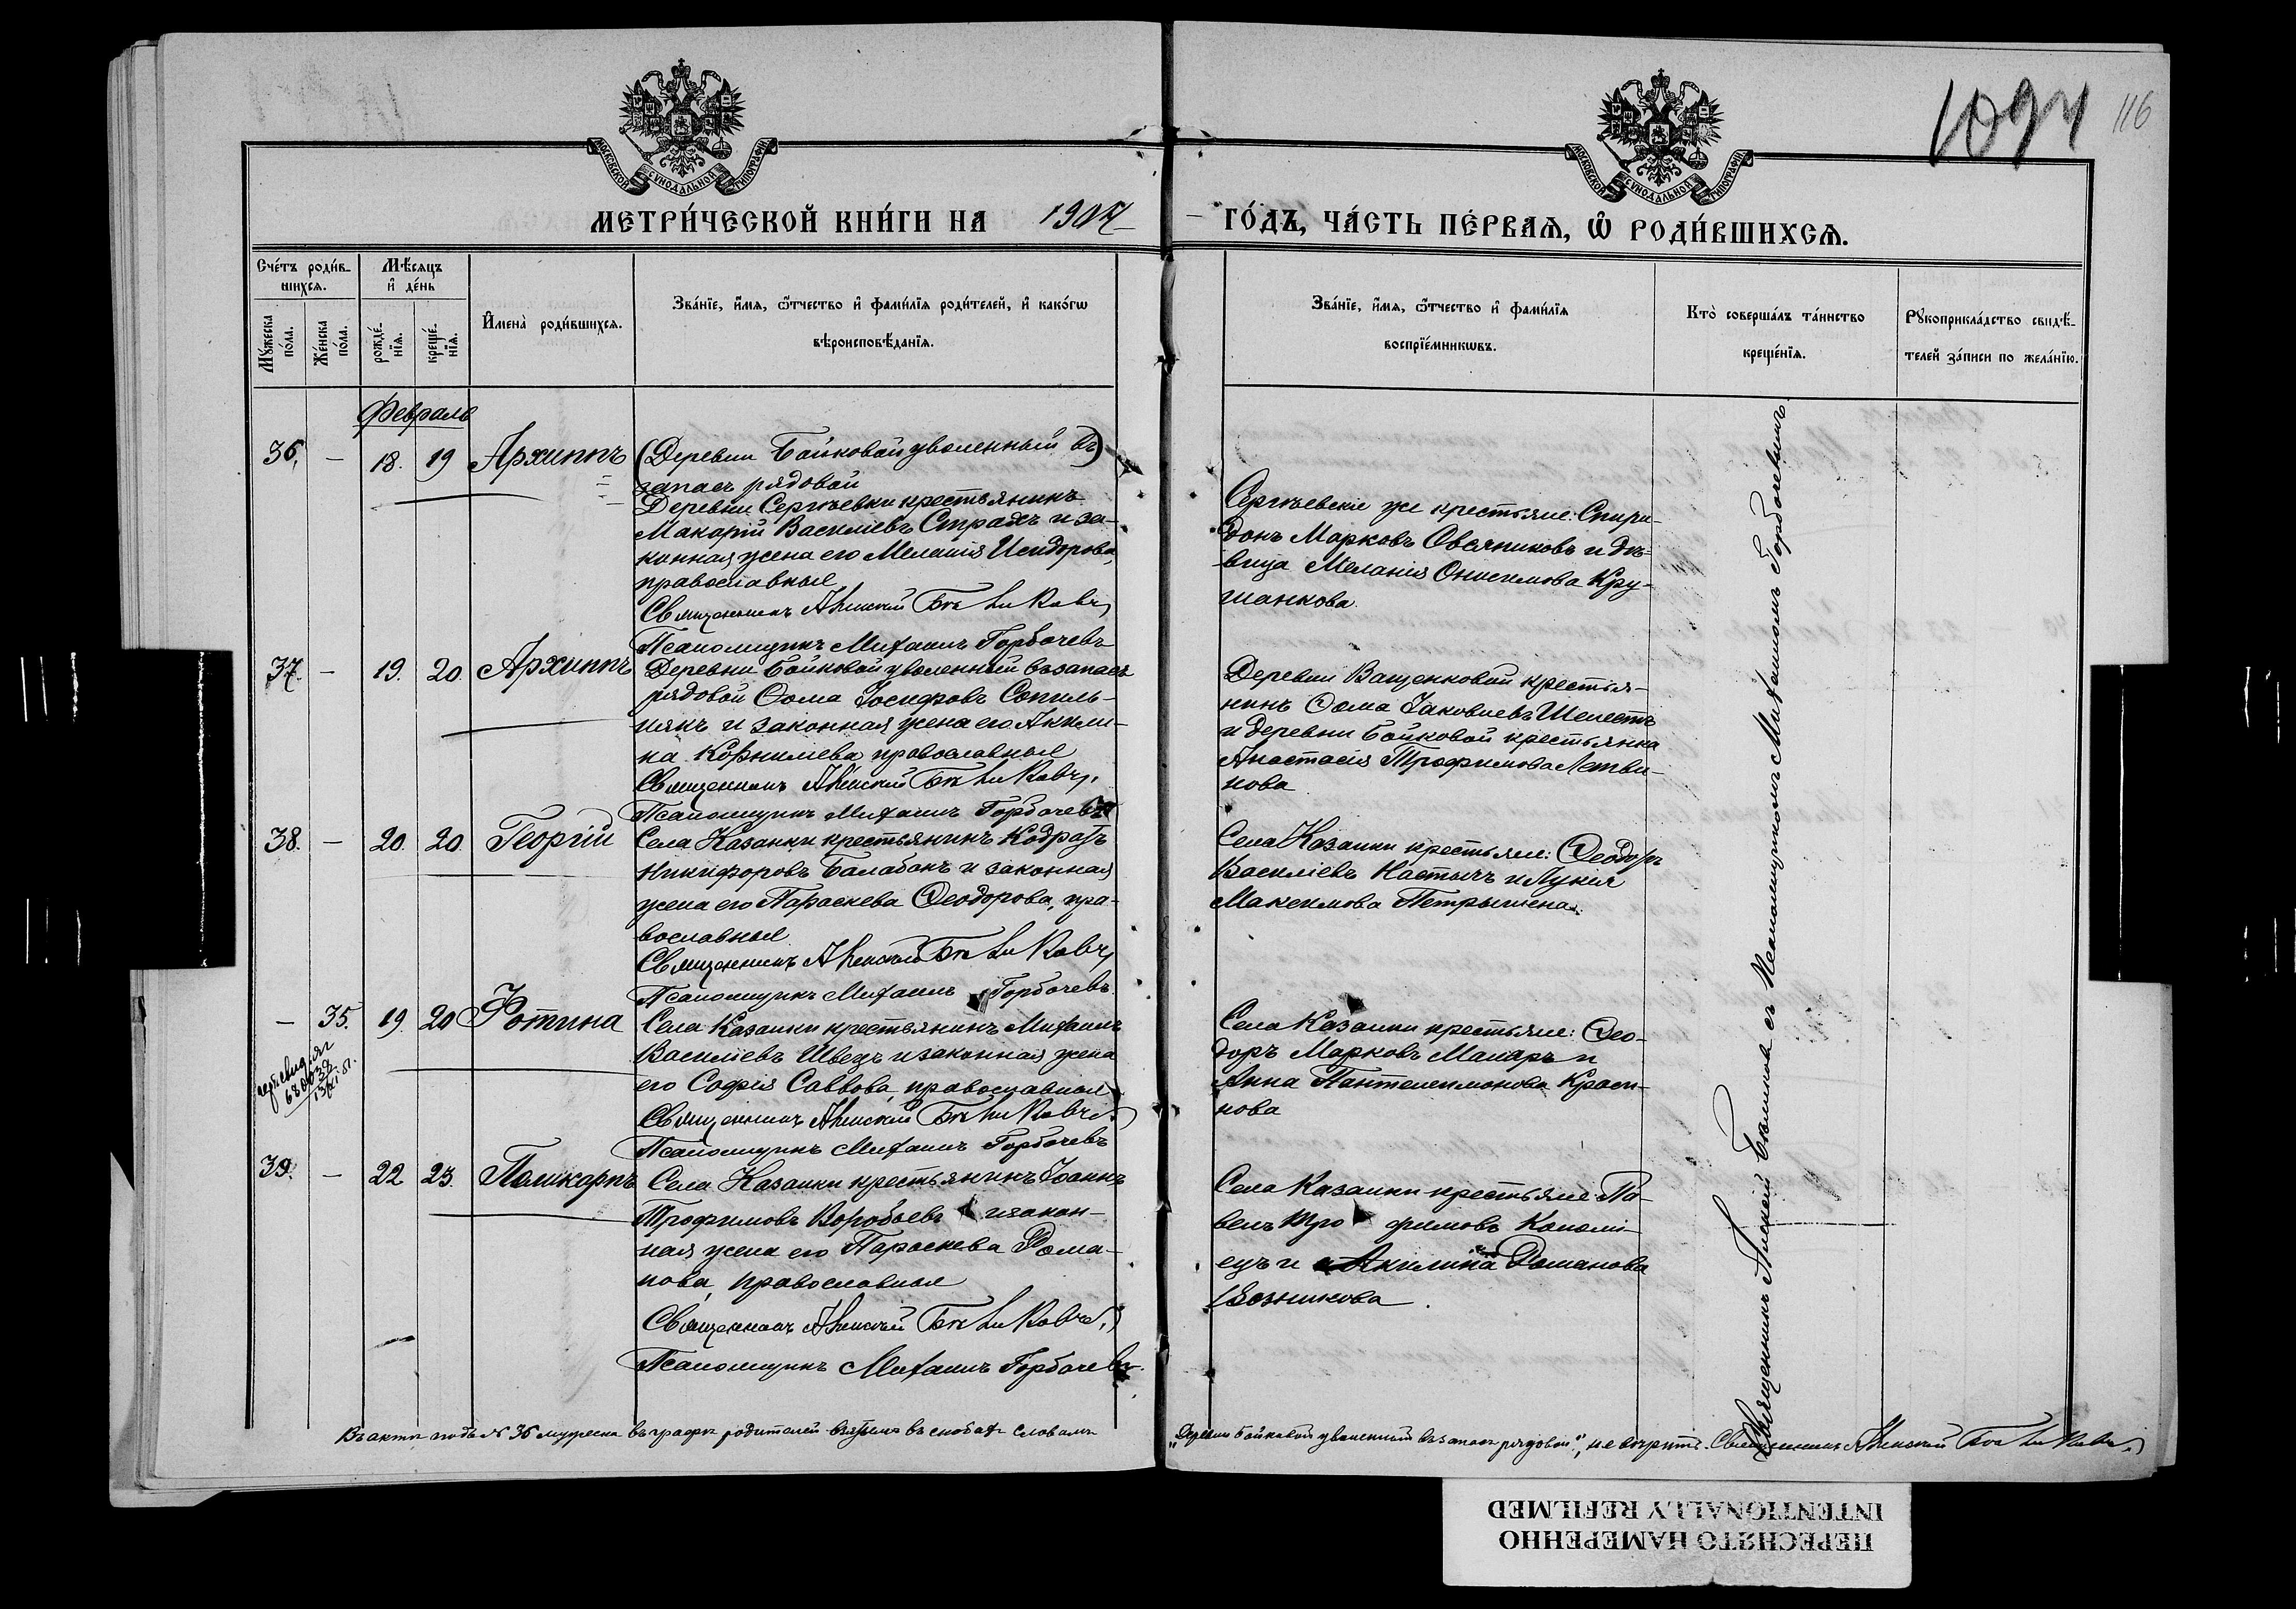 1094 116
МОСКОВСКОЙ СѴНОДАЛЬНОЙ ТИПОГРАФІИ
МОСКОВСКОЙ СѴНОДАЛЬНОЙ ТИПОГРАФІИ
МЕТРИ́ЧЕСКОЙ КНИ́ГИ НА 1904
ГО́ДЪ, ЧА́СТЬ ПЕ́РВАѦ, Ѡ҆ РОДИ́ВШИХСѦ.
Сче́тъ роди́в-
шихсѧ.
Мѣ́сѧцъ
и҆ де́нь
Мꙋ́жеска
по́ла.
Же́нска
по́ла.
рожде́-
нїѧ.
креще́-
нїѧ.
И҆мена̀ роди́вшихсѧ.
Зва́нїе, и҆́мѧ, ѻ҆́тчество и҆ фами́лїѧ роди́телей, и҆ како́гѡ
вѣроисповѣ́данїѧ.
Зва́нїе, и҆́мѧ, ѻ҆́тчество и҆ фами́лїѧ
воспрїе́мникѡвъ.
Кто̀ соверша́лъ та́инство
креще́нїѧ.
Рꙋкоприкла́дство свидѣ́-
телей за́писи по жела́нїю.
Февраль
36. – 18. 19 Архиппъ
(Деревни Байковой уволенный въ)
запасъ рядовой
Деревни Сергѣевки крестьянинъ
Макарій Василіевъ Страхъ и за-
конная жена его Меланія Исидорова,
православные
Священникъ Алексій Бѣликовъ
Псаломщикъ Михаилъ Горбачевъ
Сергѣевскіе же крестьяне: Спири-
донъ Марковъ Овсяниковъ и дѣ-
вица Меланія Онисимова Кру-
шанкова.
37. – 19. 20. Архиппъ
Деревни Байковой уволенный въ запасъ
рядовой Ѳома Іосифовъ Сопиль-
някъ и законная жена его Акили-
на Корнилiева православные
Священникъ Алексій Бѣликовъ
Псаломщикъ Михаилъ Горбачевъ
Деревни Ващенковой крестья-
нинъ Ѳома Іаковлевъ Шелестъ
и деревни Байковой крестьянка
Анастасія Трофимова Летви-
нова
38. – 20. 20 Георгій
Села Казанки крестьянинъ Кодратъ
Никифоровъ Балабанъ и законная
жена его Параскева Ѳеодорова, пра-
вославные
Священникъ Алексій Бѣликовъ
Псаломщикъ Михаилъ Горбачевъ.
Села Казанки крестьяне: Ѳеодоръ
Василіевъ и Лукія
Максимова
– 35. 19. 20 Фотина
Села Казанки крестьянинъ Михаилъ
Василіевъ Швецъ и законная жена
его Софія Саввова, православные
Священникъ Алексій Бѣликовъ
Псаломщикъ Михаилъ Горбачевъ
Села Казанки крестьяне: Ѳео-
доръ Марковъ Макаръ и
Анна Пантелеимонова Красн-
нова
39. – 22 23. Поликарпъ
Села Казанки крестьянинъ Іоаннъ
Трофимовъ Воробьевъ и закон-
ная жена его Параскева Рома-
нова, православные
Священникъ Алексій Бѣликовъ
Псаломщикъ Михаилъ Горбачевъ.
Села Казанки крестьяне Па-
велъ Трофимовъ Коломі-
ецъ и Акилина Романова
Возникова.
Священникъ Алексій Бѣликовъ съ Псаломщикомъ Михаиломъ Горбачевымъ.
Въ актѣ подъ № 36 мужеска въ графѣ родителей взятымъ въ скобахъ словамъ
"Деревни Байковой уволенный въ запасъ рядовой", не вѣрить. Священникъ Алексій Бѣликовъ
ПЕРЕСНЯТО НАМЕРЕННО
INTENTIONALLY REFILMED